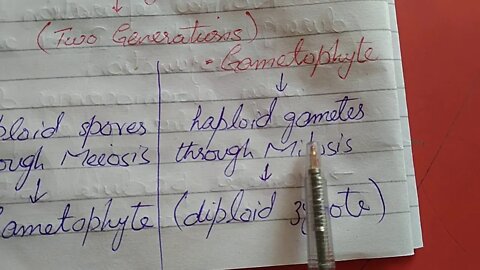 (Two Generations)
Gametophyte
↓
haploid gametes
through Mitosis
↓
(diploid zygote)
ploid spores
ough Meiosis
↓
ametophyte